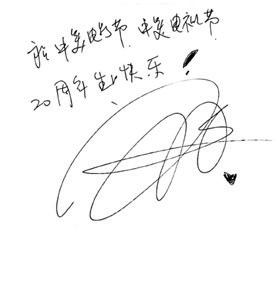 祝中美电影节、中美电视节
20周年生日快乐!